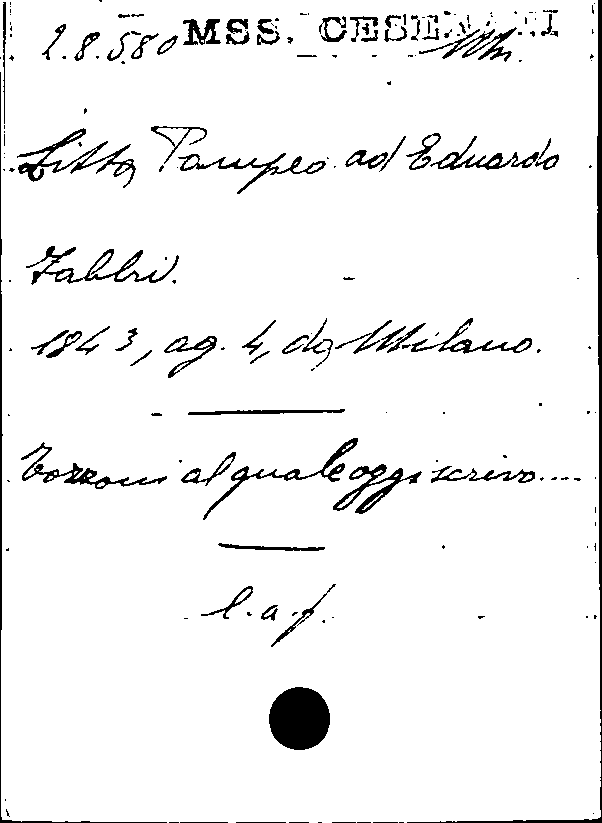 2.8.580 MSS. CESENATI
Litta Pompeo ad Eduardo
Fabbri.
1843, ag. 4, da Milano.
Tozzoni al quale oggi scrivo....
l.a.f.